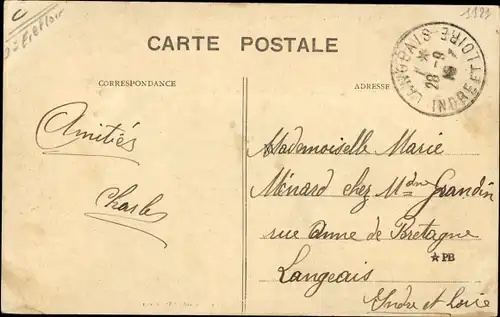 1121
CARTE POSTALE
CORRESPONDANCE
ADRESSE
LANGEAIS
INDRE ET LOIRE
28 - 9
Amitiés
Charles
Mademoiselle Marie
Ménard chez Mdme Grandin
rue Anne de Bretagne
★PB
Langeais
Indre et Loire